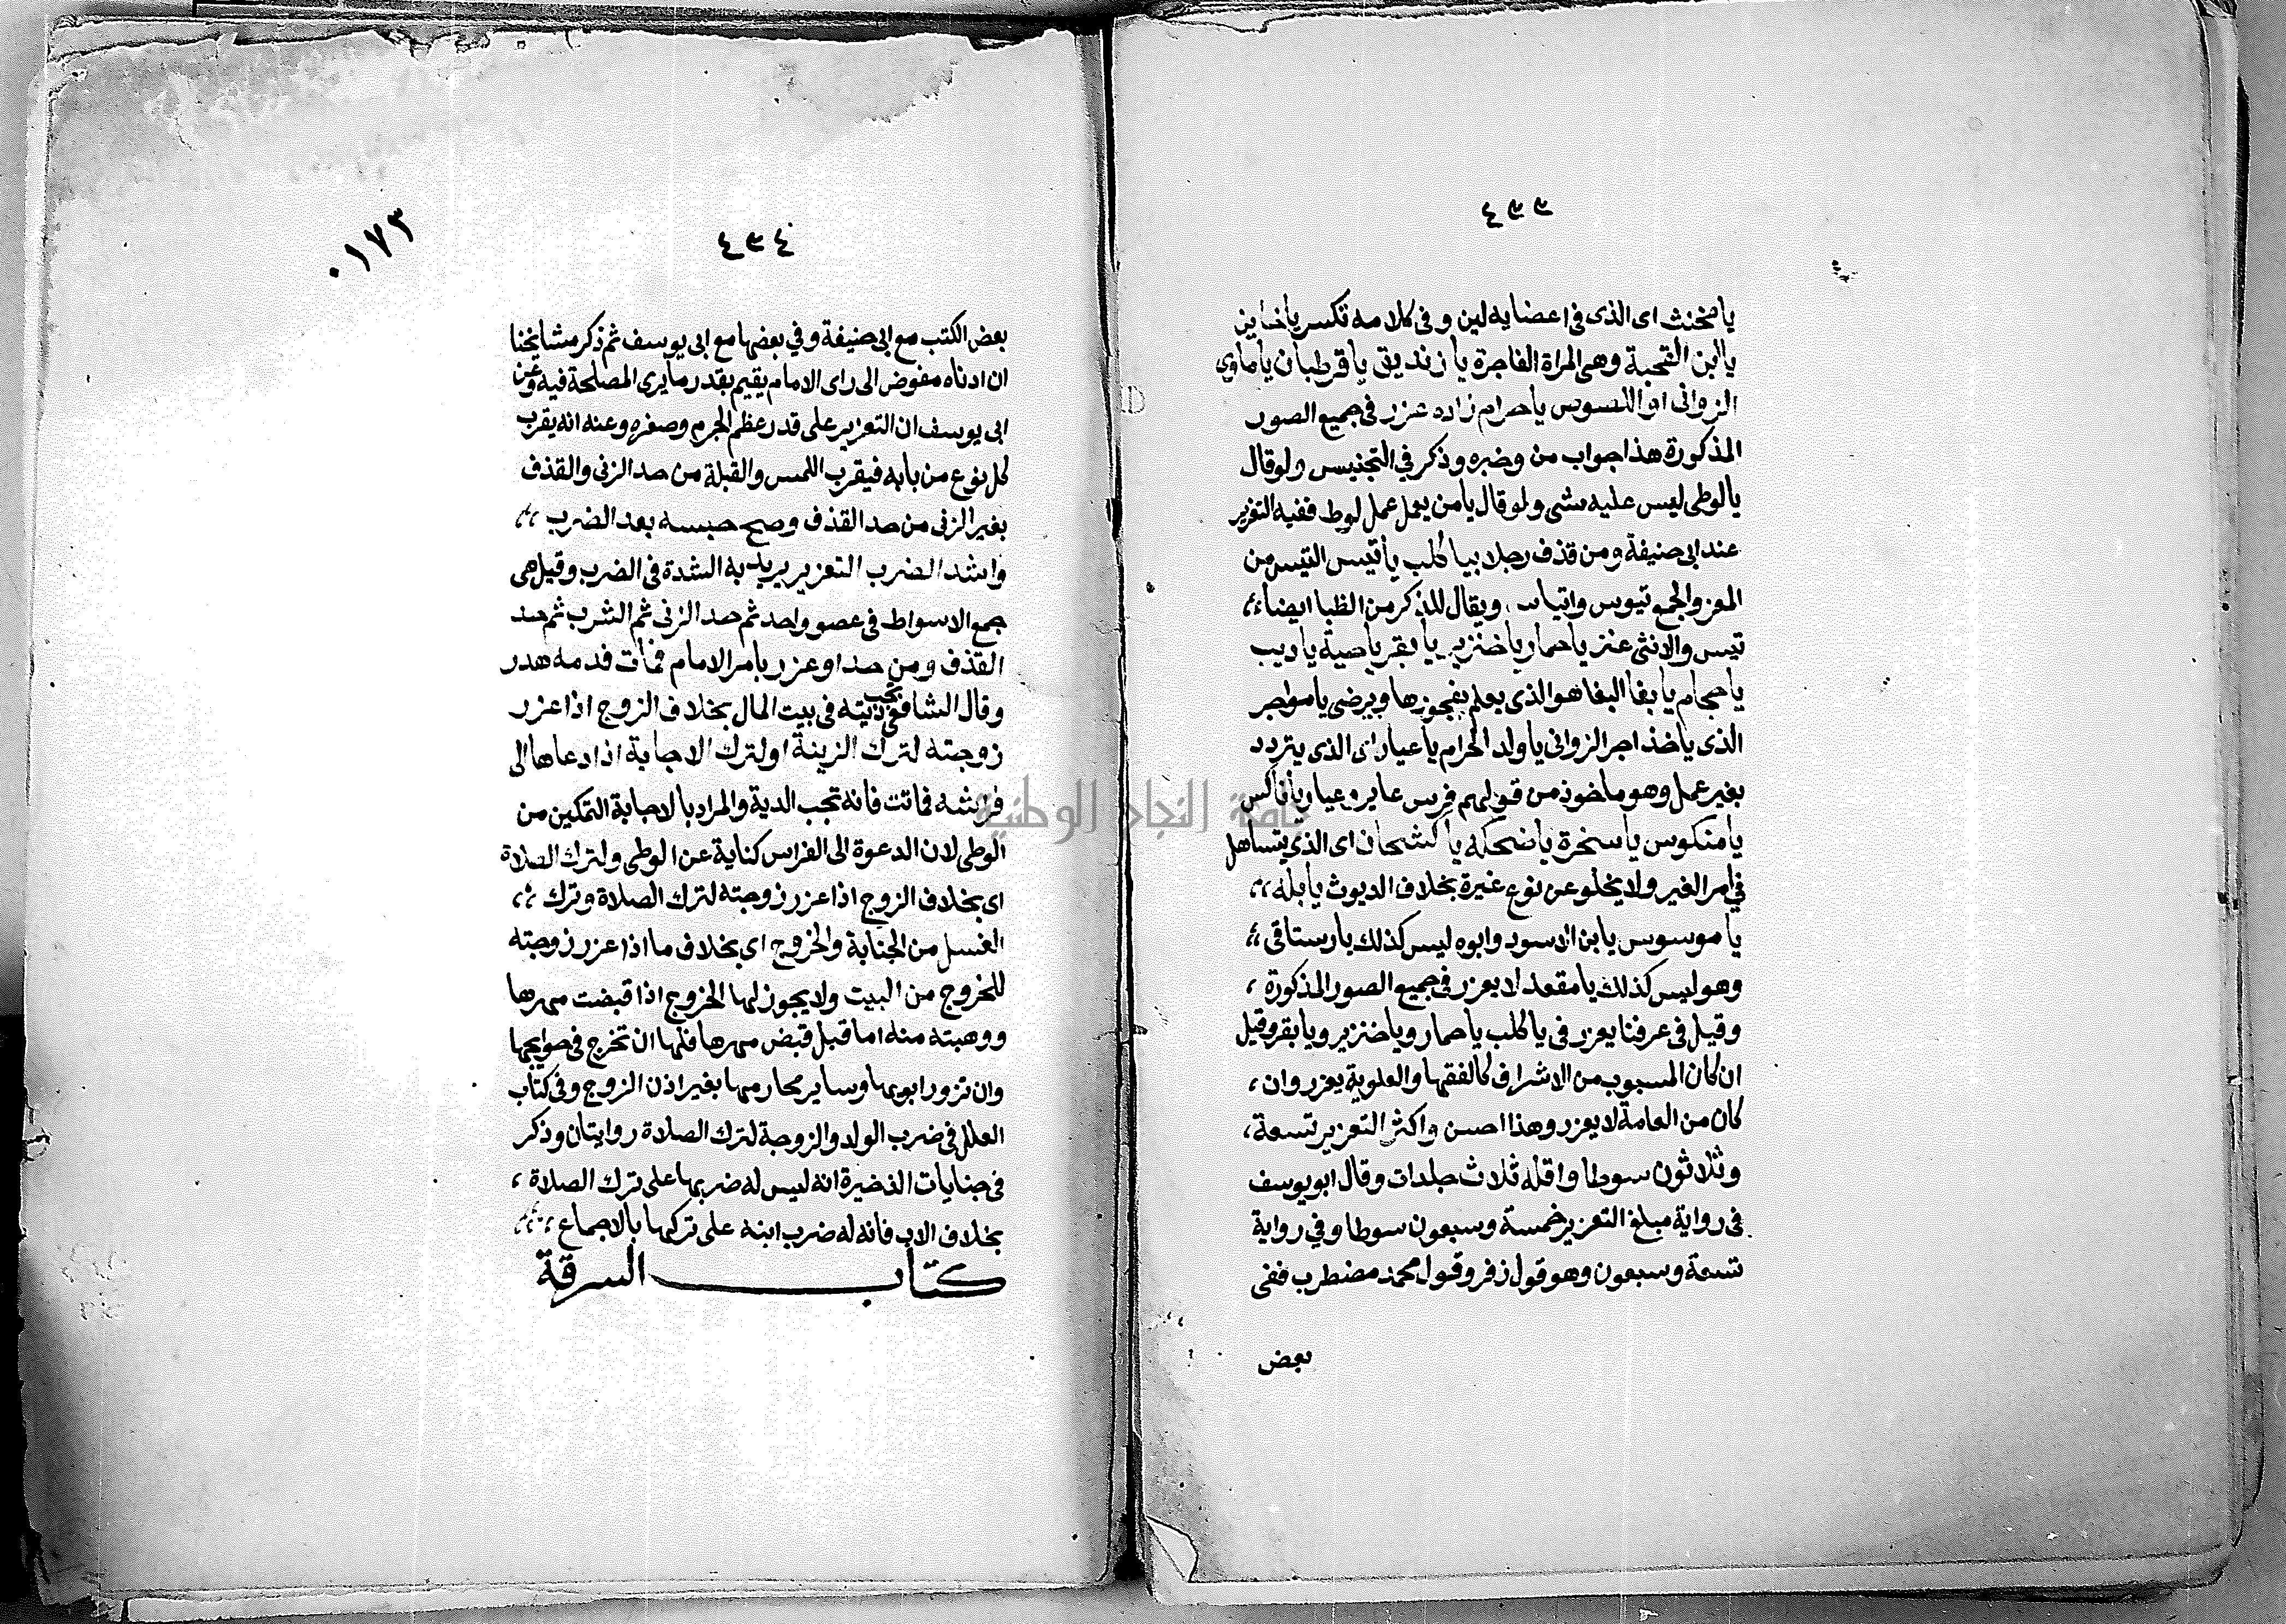 ٤٣٣
يا مخنث اى الذى فى اعضايه لين وفى كلامه تكسر يا خاين
يا ابن القحبة وهى المراة الفاجرة يا زنديق يا قرطبان يا ماوى
الزوانى او اللصوص يا حرام زاده عزر فى جميع الصور
المذكورة هذا جواب من وضبره وذكر في التجنيس ولو قال
يا لوطى ليس عليه شى ولو قال يا من يعمل عمل لوط ففيه التعزير
عند ابى حنيفة ومن قذف رجلا بيا كلب يا تيس التيس من
المعز والجمع تيوس واتياس ويقال للذكر من الظبا ايضا
تيس والانثى عنز يا حمار يا خنزير يا بقر يا حية يا ديب
يا حجام يا بغا البغا هو الذى يعلم بفجورها ويرضى يا مواجر
الذى ياخذ اجر الزوانى يا ولد الحرام يا عيار اى الذى يتردد
بغير عمل وهو ماخوذ من قولهم فرس عاير وعيار يا ناكس
يا منكوس يا سخرة يا ضحكه يا كشحان اى الذى يتساهل
في امر الغير ولا يخلو عن نوع غيرة بخلاف الديوث يا ابله
يا موسوس يا ابن الاسود وابوه ليس كذلك يا رستاقى
وهو ليس كذلك يا مقعد لا يعزر في جميع الصور المذكورة
وقيل فى عرفنا يعزر فى يا كلب يا حمار ويا خنزير ويا بقر وقيل
ان كان المسبوب من الاشراف كالفقها والعلوية يعزر وان
كان من العامة لا يعزر وهذا احسن واكثر التعزير تسعة
وثلاثون سوطا واقله ثلاث جلدات وقال ابو يوسف
فى رواية مبلغ التعزير خمسة وسبعون سوطا وفي رواية
تسعة وسبعون وهو قول زفر وقول محمد مضطرب ففى
بعض
٤٣٤
٠١٧٣
بعض الكتب مع ابى حنيفة وفي بعضها مع ابى يوسف ثم ذكر مشايخنا
ان ادناه مفوض الى راى الامام يقيم بقدر ما يرى المصلحة فيه وعن
ابى يوسف ان التعزير على قدر عظم الجرم وصغره وعنه انه يقرب
كل نوع من بابه فيقرب اللمس والقبلة من حد الزنى والقذف
بغير الزنى من حد القذف وصح حبسه بعد الضرب
واشد الضرب التعزير يريد به الشدة فى الضرب وقيل هى
جمع الاسواط فى عضو واحد ثم حد الزنى ثم الشرب ثم حد
القذف ومن حد او عزر بامر الامام فمات فدمه هدر
وقال الشافعى تجب ديته فى بيت المال بخلاف الزوج اذا عزر
زوجته لترك الزينة او لترك الاجابة اذا دعاها الى
فراشه فماتت فانه تجب الدية والمراد بالاجابة التمكين من
الوطى لان الدعوة الى الفراس كناية عن الوطى ولترك الصلاة
اى بخلاف الزوج اذا عزر زوجته لترك الصلاة وترك
الغسل من الجنابة والخروج اى بخلاف ما اذا عزر زوجته
للخروج من البيت ولا يجوز لها الخروج اذا قبضت مهرها
ووهبته منه اما قبل قبض مهرها فلها ان تخرج فى حوايجها
وان تزور ابويها وساير محارمها بغير اذن الزوج وفى كتاب
العلل فى ضرب الولد والزوجة لترك الصلاة روايتان وذكر
فى جنايات الذخيرة انه ليس له ضربها على ترك الصلاة
بخلاف الاب فانه له ضرب ابنه على تركها بالاجماع
كتاب السرقة
جامعة النجاح الوطنية